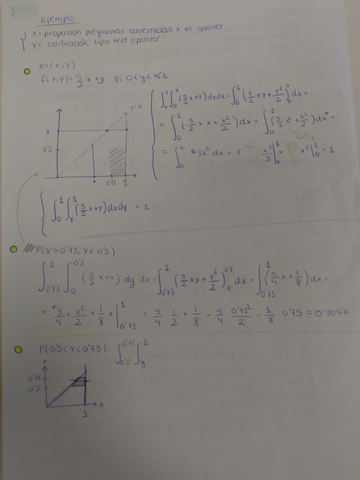 Ejemplo
x = proporcion preguntas contestadas x el opositor
y = calificación tipo test opositor.
f(x,y) = 5/2 x + y si 0<y<x<1
∫₀¹∫₀ˣ (5/2 x+y) dydx = ∫₀¹ (5/2 xy + y²/2)₀ˣ dx =
= ∫₀¹ (5/2 x·x + x²/2) dx = ∫₀¹ (5/2 x² + x²/2) dx =
= ∫₀¹ 3x² dx = 3 x³/3 |₀¹ x³|₀¹ = 1
y
0'5
0'75 1
∫₀¹∫ᵧ¹ (5/2 x+y) dxdy = 1
P(X>0'75, Y<0'5)
∫₀'₇₅¹ ∫₀⁰'⁵ (5/2 x+y) dy dx = ∫₀'₇₅¹ (5/2 xy + y²/2)₀⁰'⁵ dx = ∫₀'₇₅¹ (5/4 x + 1/8) dx =
= 5/4 · x²/2 + 1/8 x |₀'₇₅¹ = 5/4 · 1/2 + 1/8 - 5/4 · 0'75²/2 - 1/8 · 0'75 = 0'3047
P(0'5<Y<0'75) = ∫₀'₅⁰'⁷⁵ ∫ᵧ¹
0'75
0'5
1